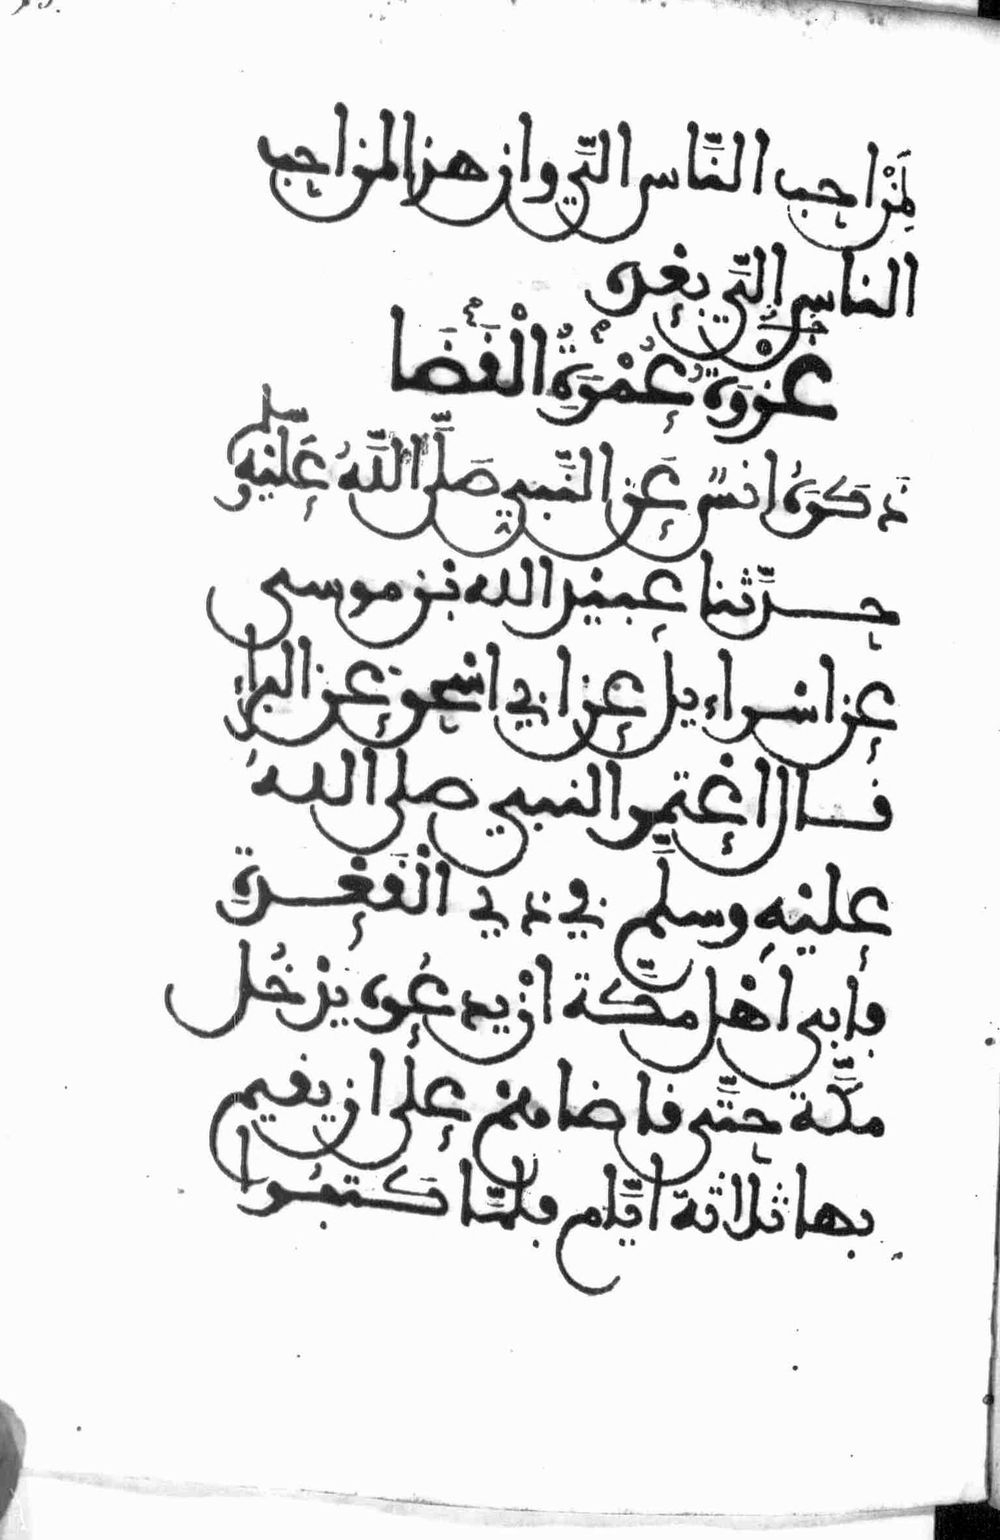 لَمِنْ احب النَّاس الَيّ وان هذا لمن احب
الناس الَيّ بعده
غَزْوَةُ عُمْرَةِ الْقَضَا
ذَكَرَهُ انسٌ عَنِ النَّبِي صَلَّى اللَّهُ عَلَيْهِ وسلم
حدَّثنا عبيد الله بن موسى
عن اسراءيل عن ابي اسحق عن البراء
قال اعتمر النبي صلى اللهُ
عليهِ وسلَّم في ذي الْقَعْدةِ
فأبى أهل مكة ان يدعوه يدخُل
مكَّة حتَّى قاضاهم على ان يقيم
بها ثلاثة ايَّام فلمَّا كتبُوا